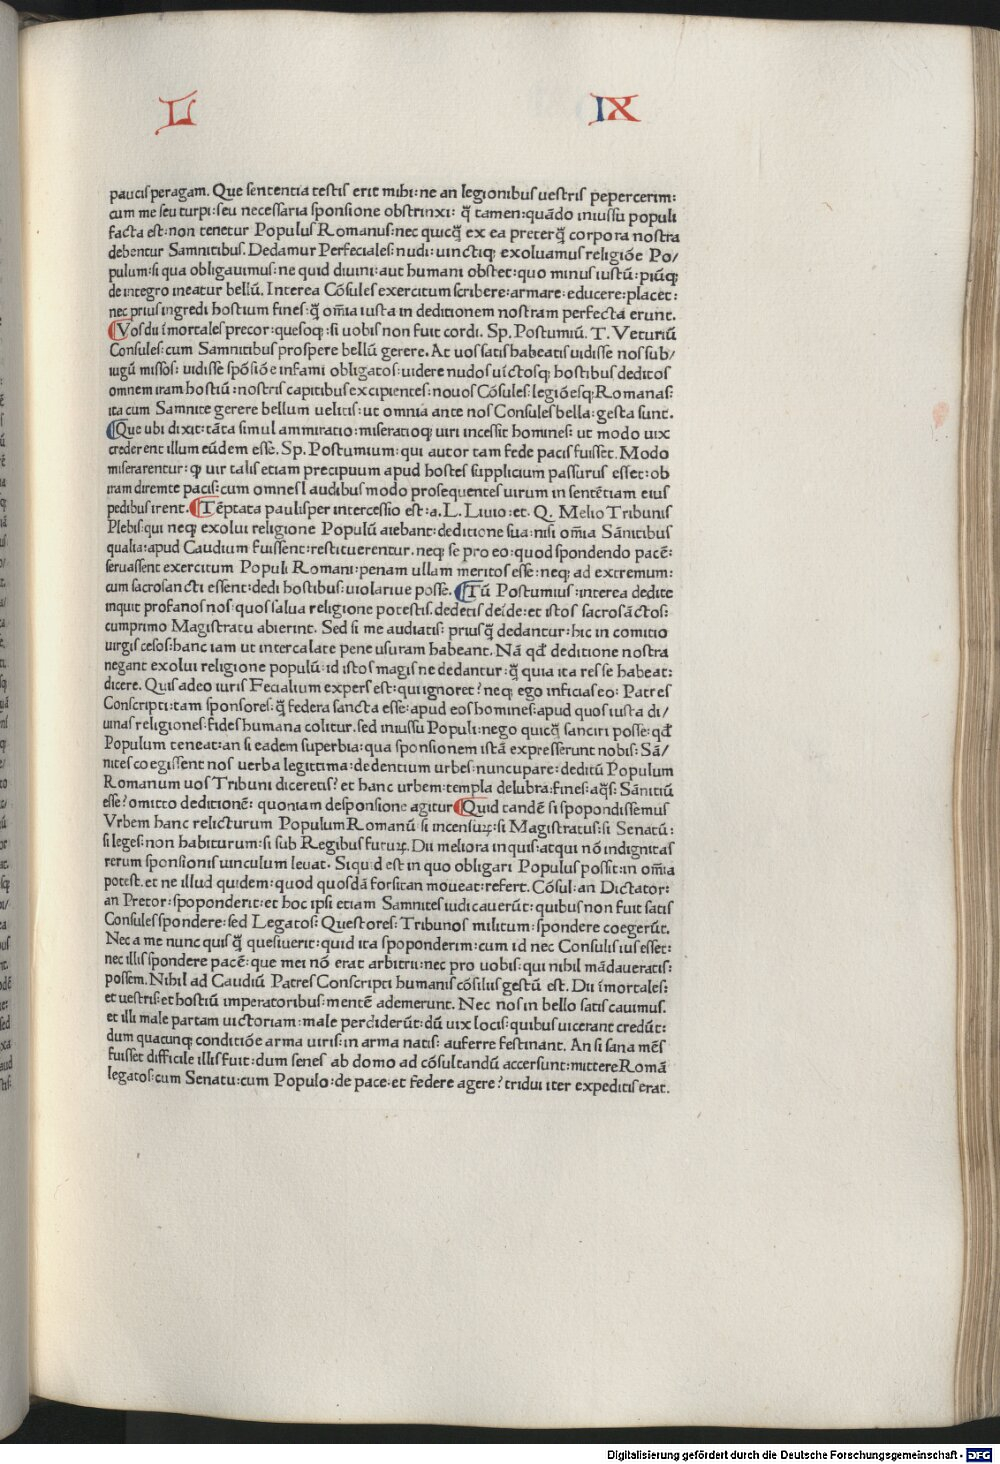 L IX
paucis peragam. Que sententia testis erit mihi: ne an legionibus uestris pepercerim:
cum me seu turpi: seu necessaria sponsione obstrinxi: q̃ tamen: quãdo iniussu populi
facta est: non tenetur Populus Romanus: nec quicq̃ ex ea preterq̃ corpora nostra
debentur Samnitibus. Dedamur Perfeciales: nudi: uinctiq; exoluamus religiõe Po/
pulum: si qua obligauimus: ne quid diuini: aut humani obstet: quo minus iustũ: piũq;
de integro ineatur bellũ. Interea Cõsules exercitum scribere: armare: educere: placet:
nec prius ingredi hostium fines: q̃ om̃ia iusta in deditionem nostram perfecta erunt.
Vos dii ĩmortales precor: quesoq; si uobis non fuit cordi. Sp. Postumiũ. T. Veturiũ
Consules: cum Samnitibus prospere bellũ gerere. At uos satis habeatis uidisse nos sub/
iugũ missos: uidisse spõsiõe infami obligatos: uidere nudos uĩctosq; hostibus deditos
omnem iram hostiũ: nostris capitibus excipientes: nouos Cõsules: legiõesq; Romanas:
ita cum Samnite gerere bellum uelitis: ut omnia ante nos Consules bella: gesta sunt.
Que ubi dixit: tãta simul ammiratio: miseratioq; uiri incessit homines: ut modo uix
crederent illum eũdem esse. Sp. Postumium: qui autor tam fede pacis fuisset. Modo
miserarentur: ꝙ uir talis etiam precipuum apud hostes supplicium passurus esset: ob
iram diremte pacis: cum omnes laudibus modo prosequentes uirum in sentẽtiam eius
pedibus irent. Tẽptata paulisper intercessio est: a. L. Liuio: et. Q. Melio Tribunis
Plebis: qui neq; exolui religione Populũ aiebant: deditione sua: nisi om̃ia Sãnitibus
qualia: apud Caudium fuissent: restituerentur. neq; se pro eo: quod spondendo pacẽ:
seruassent exercitum Populi Romani: penam ullam meritos esse: neq; ad extremum:
cum sacrosancti essent: dedi hostibus: uiolariue posse. Tũ Postumius: interea dedite
inquit profanos nos: quos salua religione potestis. dedetis deĩde: et istos sacrosãctos:
cumprimo Magistratu abierint. Sed si me audiatis: priusq̃ dedantur: hic in comitio
uirgis cesos: hanc iam ut intercalate pene usuram habeant. Nã qđ deditione nostra
negant exolui religione populũ: id istos magis ne dedantur: q̃ quia ita res se habeat:
dicere. Quis adeo iuris Fecialium expers est: qui ignoret? neq; ego inficias eo: Patres
Conscripti: tam sponsores: q̃ federa sancta esse: apud eos homines: apud quos iusta di/
uinas religiones: fides humana colitur. sed iniussu Populi: nego quicq̃ sanciri posse: qđ
Populum teneat: an si eadem superbia: qua sponsionem istã expresserunt nobis: Sã/
nites coegissent nos uerba legittima: dedentium urbes: nuncupare: deditũ Populum
Romanum uos Tribuni diceretis? et hanc urbem: templa delubra: fines: aq̃s: Sãnitiũ
esse? omitto deditionẽ: quoniam desponsione agitur Quid tandẽ si spopondissemus
Vrbem hanc relicturum Populum Romanũ si incensuꝝ: si Magistratus: si Senatũ:
si leges: non habiturum: si sub Regibus futuꝝ. Dii meliora inquis: atqui nõ indignitas
rerum sponsionis uinculum leuat. Si quid est in quo obligari Populus possit: in om̃ia
potest. et ne illud quidem: quod quosdã forsitan moueat: refert. Cõsul: an Dictator:
an Pretor: spoponderit: et hoc ipsi etiam Samnites iudicauerũt: quibus non fuit satis
Consules spondere: sed Legatos: Questores: Tribunos militum: spondere coegerũt.
Nec a me nunc quis q̃ quesiuerit: quid ita spoponderim: cum id nec Consulis ius esset:
nec illis spondere pacẽ: que mei nõ erat arbitrii: nec pro uobis: qui nihil mãdaueratis:
possem. Nihil ad Caudiũ Patres Conscripti humanis cõsiliis gestũ est. Dii ĩmortales:
et uestris: et hostiũ imperatoribus: mentẽ ademerunt. Nec nos in bello satis cauimus.
et illi male partam uictoriam: male perdiderũt: dũ uix locis: quibus uicerant credũt:
dum quacunq; conditiõe arma uiris: in arma natis: auferre festinant. An si sana mẽs
fuisset difficile illis fuit: dum senes ab domo ad cõsultandũ accersunt: mittere Romã
legatos: cum Senatu: cum Populo: de pace: et federe agere? tridui iter expeditis erat.
Digitalisierung gefördert durch die Deutsche Forschungsgemeinschaft - DFG